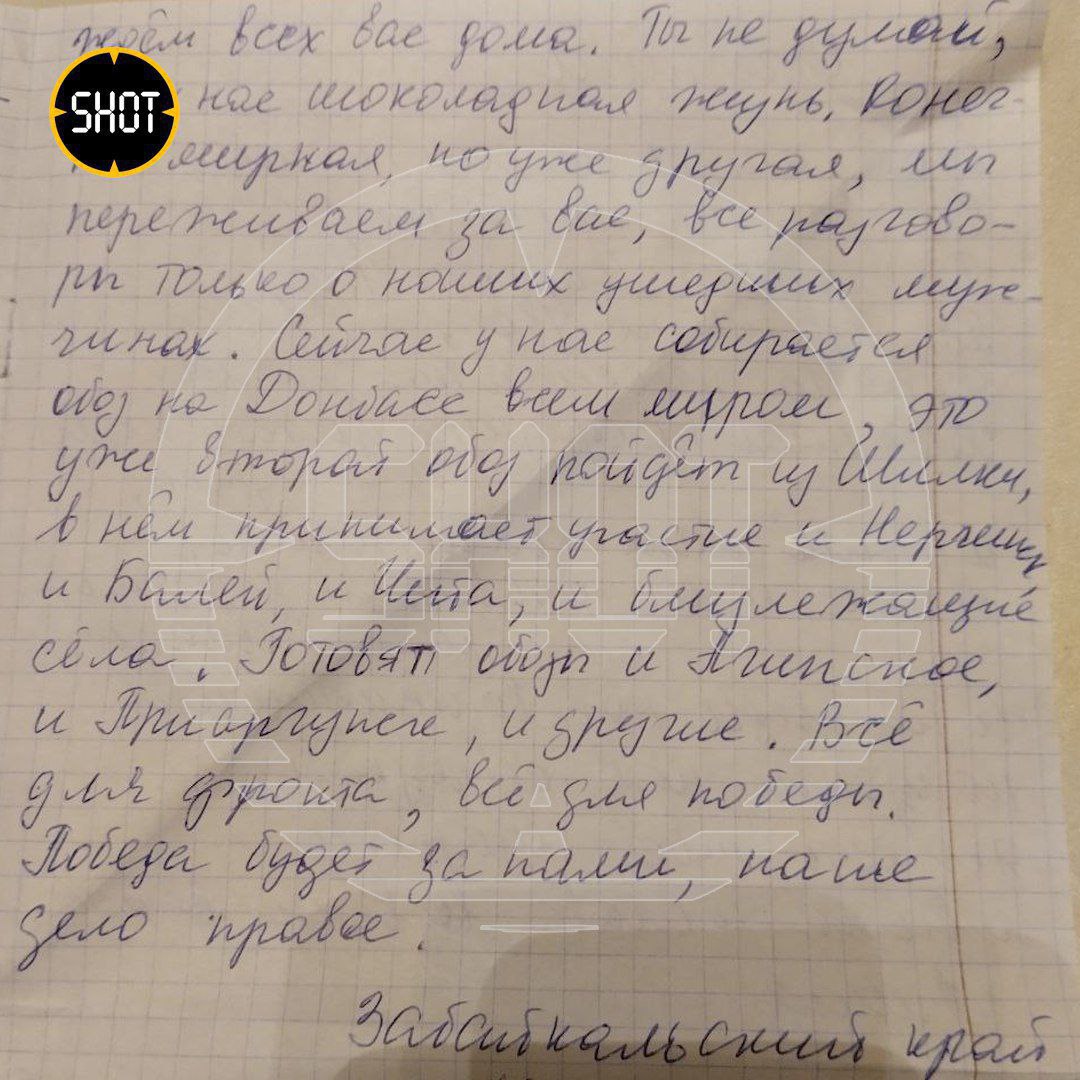 ждём всех вас дома. Ты не думай,
SHOT
нас шоколадная жизнь. Конеч-
мирная, но уже другая, мы
переживаем за вас, все разгово-
ры только о наших ушедших муж-
чинах. Сейчас у нас собирается
обоз на Донбасс всем миром, это
уже второй обоз пойдёт из Шилки,
в нём принимает участие и Нерчинск
и Балей, и Чита, и близлежащие
сёла. Готовят обозы и Агинское,
и Приаргунск, и другие. Всё
для фронта, всё для победы.
Победа будет за нами, наше
дело правое.
Забайкальский край